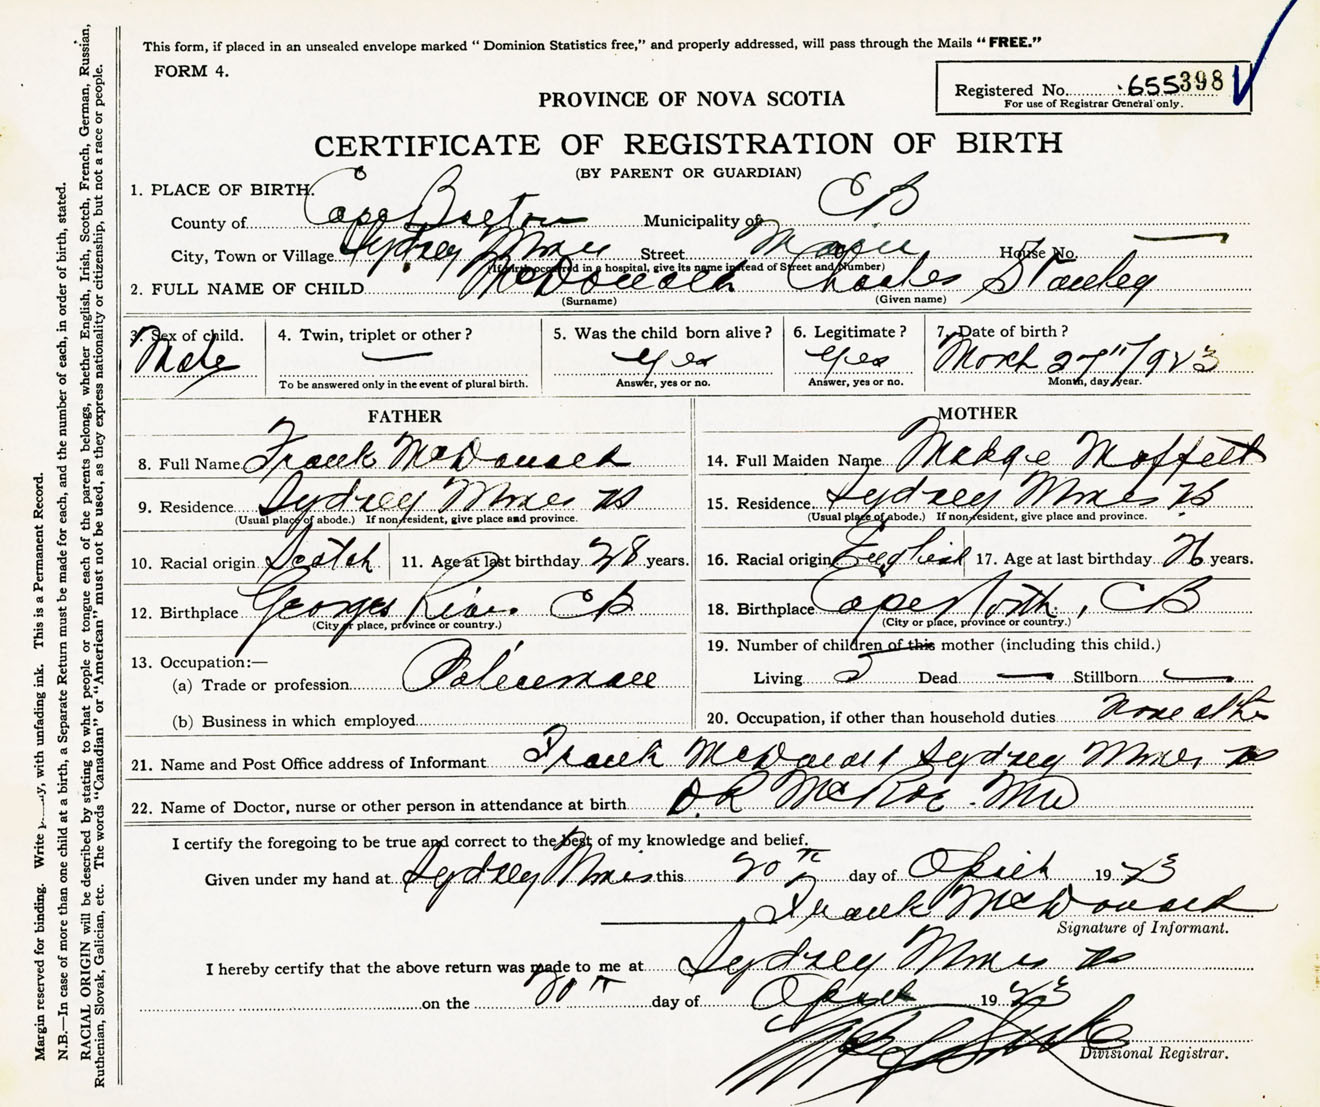 This form, if placed in an unsealed envelope marked " Dominion Statistics free," and properly addressed, will pass through the Mails "FREE."
FORM 4.
Registered No. 655398
For use of Registrar General only.
PROVINCE OF NOVA SCOTIA
CERTIFICATE OF REGISTRATION OF BIRTH
(BY PARENT OR GUARDIAN)
1. PLACE OF BIRTH.
County of Cape Breton Municipality of CB
City, Town or Village Sydney Mines Street Main House No. —
(If birth occurred in a hospital, give its name instead of Street and Number)
2. FULL NAME OF CHILD McDonald Charles Stanley
(Surname) (Given name)
3. Sex of child. 4. Twin, triplet or other? 5. Was the child born alive? 6. Legitimate? 7. Date of birth?
Male — yes yes March 27" 1923
To be answered only in the event of plural birth. Answer, yes or no. Answer, yes or no. Month, day, year.
FATHER MOTHER
8. Full Name Frank McDonald 14. Full Maiden Name Madge Moffett
9. Residence Sydney Mines NS 15. Residence Sydney Mines NS
(Usual place of abode.) If non-resident, give place and province. (Usual place of abode.) If non-resident, give place and province.
10. Racial origin Scotch 11. Age at last birthday 28 years. 16. Racial origin English 17. Age at last birthday 26 years.
12. Birthplace Georges River CB 18. Birthplace Cape North, CB
(City or place, province or country.) (City or place, province or country.)
13. Occupation:— 19. Number of children of this mother (including this child.)
(a) Trade or profession Policeman Living Dead — Stillborn —
(b) Business in which employed 20. Occupation, if other than household duties None other
21. Name and Post Office address of Informant Frank McDonald Sydney Mines NS
22. Name of Doctor, nurse or other person in attendance at birth DR McRae. MD
I certify the foregoing to be true and correct to the best of my knowledge and belief.
Given under my hand at Sydney Mines this 20th day of April 1923
Frank McDonald
Signature of Informant.
I hereby certify that the above return was made to me at Sydney Mines NS
on the 20th day of April 1923
Divisional Registrar.
Margin reserved for binding. Write with unfading ink. This is a Permanent Record.
N.B.—In case of more than one child at a birth, a Separate Return must be made for each, and the number of each, in order of birth, stated.
RACIAL ORIGIN will be described by stating to what people or tongue each of the parents belongs, whether English, Irish, Scotch, French, German, Russian,
Ruthenian, Slovak, Galician, etc. The words "Canadian" or "American" must not be used, as they express nationality or citizenship, but not a race or people.